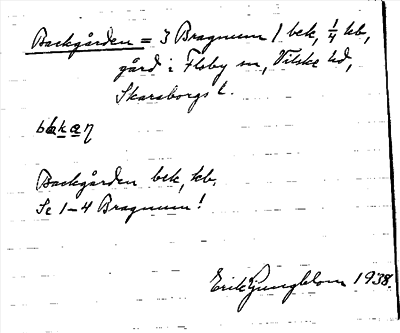 Backgården = 3 Bragnum 1 bek, 1/4 kb,
gård i Floby sn, Vilske hd,
Skaraborgs l.
Backgården bek, kb.
Se 1-4 Bragnum!
Erik Ljungblom 1938.